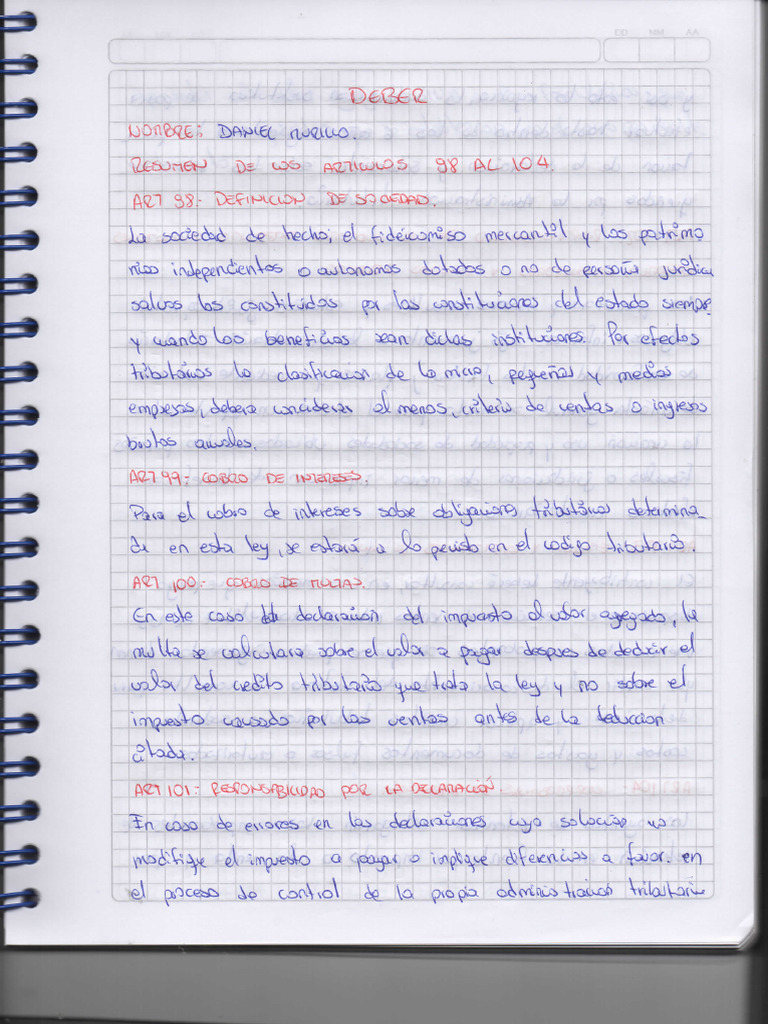 DD MM AA
DEBER
NOMBRE: DANIEL MURILLO.
RESUMEN DE LOS ARTICULOS 98 AL 104.
ART 98.- DEFINICION DE SOCIEDAD.
La sociedad de hecho; el fideicomiso mercantil y los patrimo
nios independientes o autonomos dotados o no de persona juridica
salvos los constituidos por las constituciones del estado siempre
y cuando los beneficios sean dichas instituciones. Por efectos
tributarios la clasificacion de la micro, pequeñas y medias
empresas, debera considerar al menos, criterio de ventas o ingresos
brutos anuales.
ART 99:- COBRO DE INTERESES.
Para el cobro de intereses sobre obligaciones tributarias determina_
da en esta ley, se estará a lo previsto en el codigo tributario.
ART 100.- COBRO DE MULTAS.
En este caso declaracion del impuesto al valor agregado, la
multa se calculara sobre el valor a pagar despues de deducir el
valor del credito tributario que trata la ley y no sobre el
impuesto causado por las ventas antes de la deduccion
citada.
ART 101:- RESPONSABILIDAD POR LA DECLARACIÓN.
En caso de errores en las declaraciones cuya solucion no
modifique el impuesto a pagar o inplique diferencias a favor. en
el proceso de control de la propia administracion tributaria